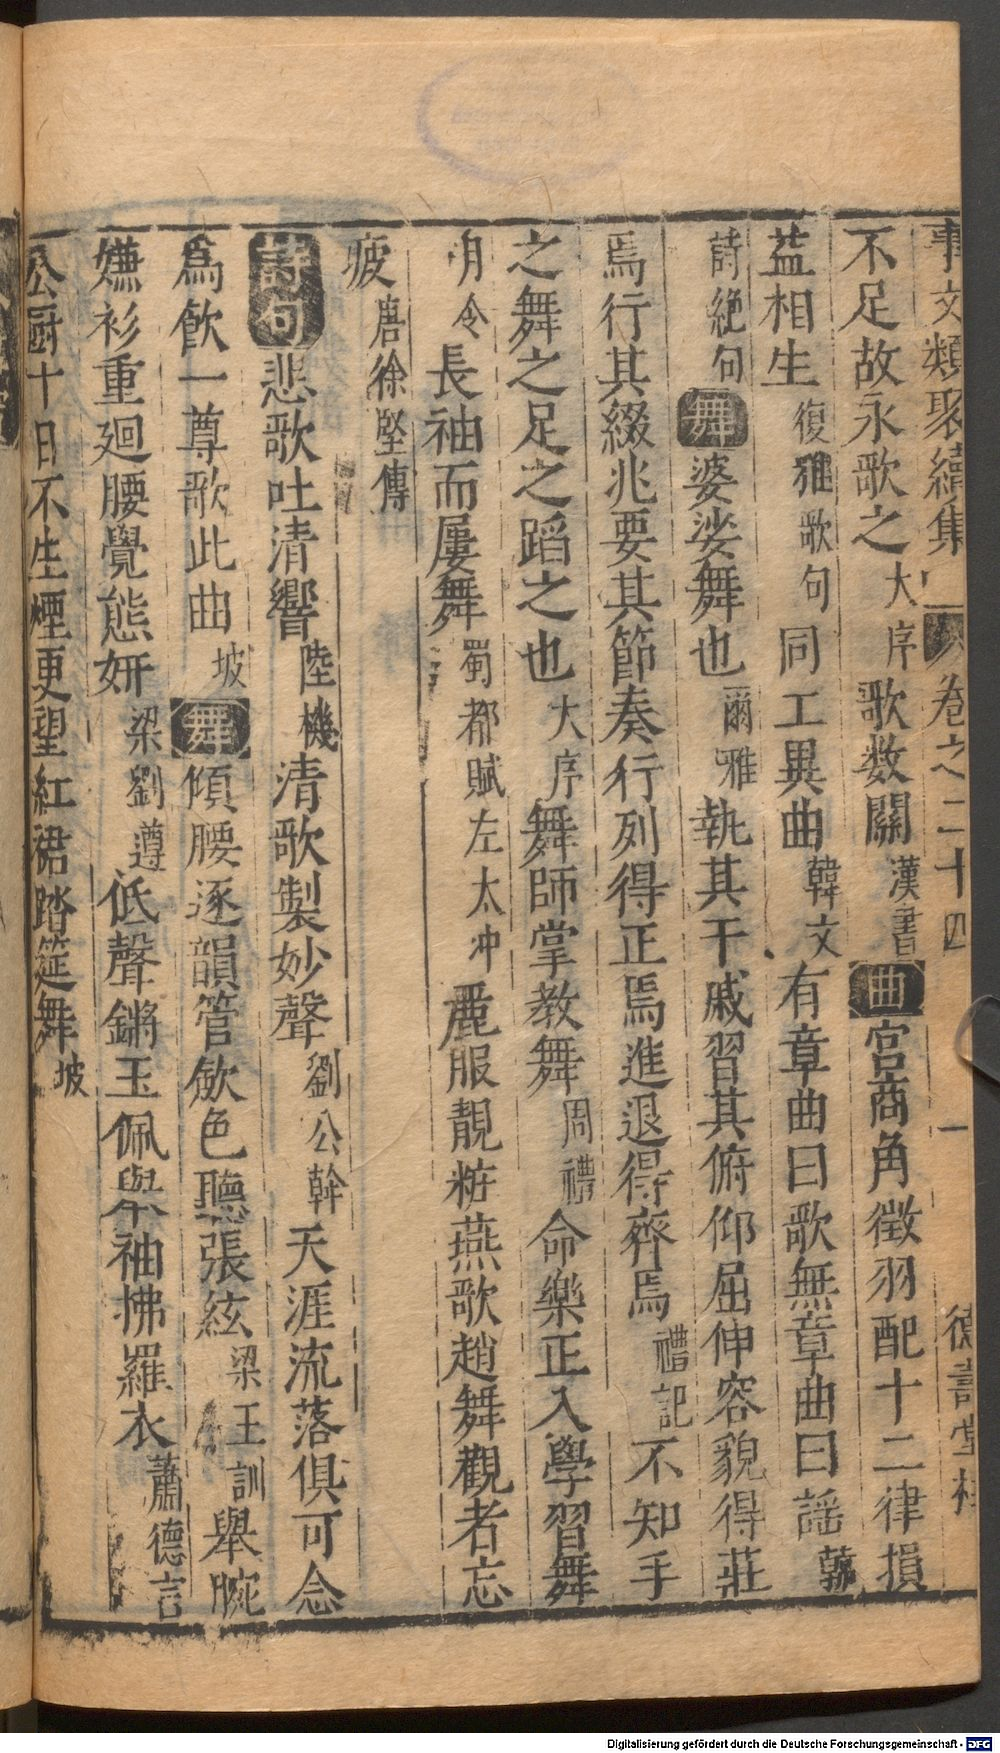 事文類聚續集 卷之二十四 一 德壽堂梓
不足故永歌之大序歌数闋漢書曲宮商角徵羽配十二律損
益相生復雅歌句同工異曲韓文有章曲曰歌無章曲曰謡韓
詩絶句舞婆娑舞也爾雅執其干戚習其俯仰屈伸容貌得莊
焉行其綴兆要其節奏行列得正焉進退得齊焉禮記不知手
之舞之足之蹈之也大序舞師掌教舞周禮命樂正入學習舞
月令長袖而屢舞蜀都賦左太冲麗服靚粧燕歌趙舞觀者忘
疲唐徐堅傳
詩句悲歌吐清響陸機清歌製妙聲劉公幹天涯流落俱可念
爲飲一尊歌此曲坡舞傾腰逐韻管斂色聽張絃梁王訓舉腕
嫌衫重廻腰覺態妍梁劉遵低聲鏘玉佩舉袖拂羅衣蕭德言
公厨十日不生煙更望紅裙踏筵舞坡
Digitalisierung gefördert durch die Deutsche Forschungsgemeinschaft - DFG